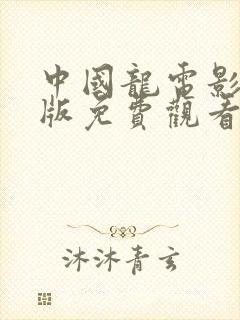 中國龍電影
版免費觀看
沐沐青玄